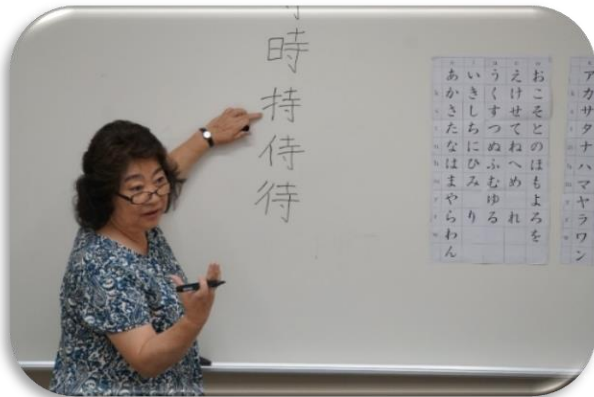 時
持
侍
待
あかさたなはまやらわん
いきしちにひみ り
うくすつぬふむゆる
えけせてねへめ れ
おこそとのほもよろを
アカサタナハマヤラワン